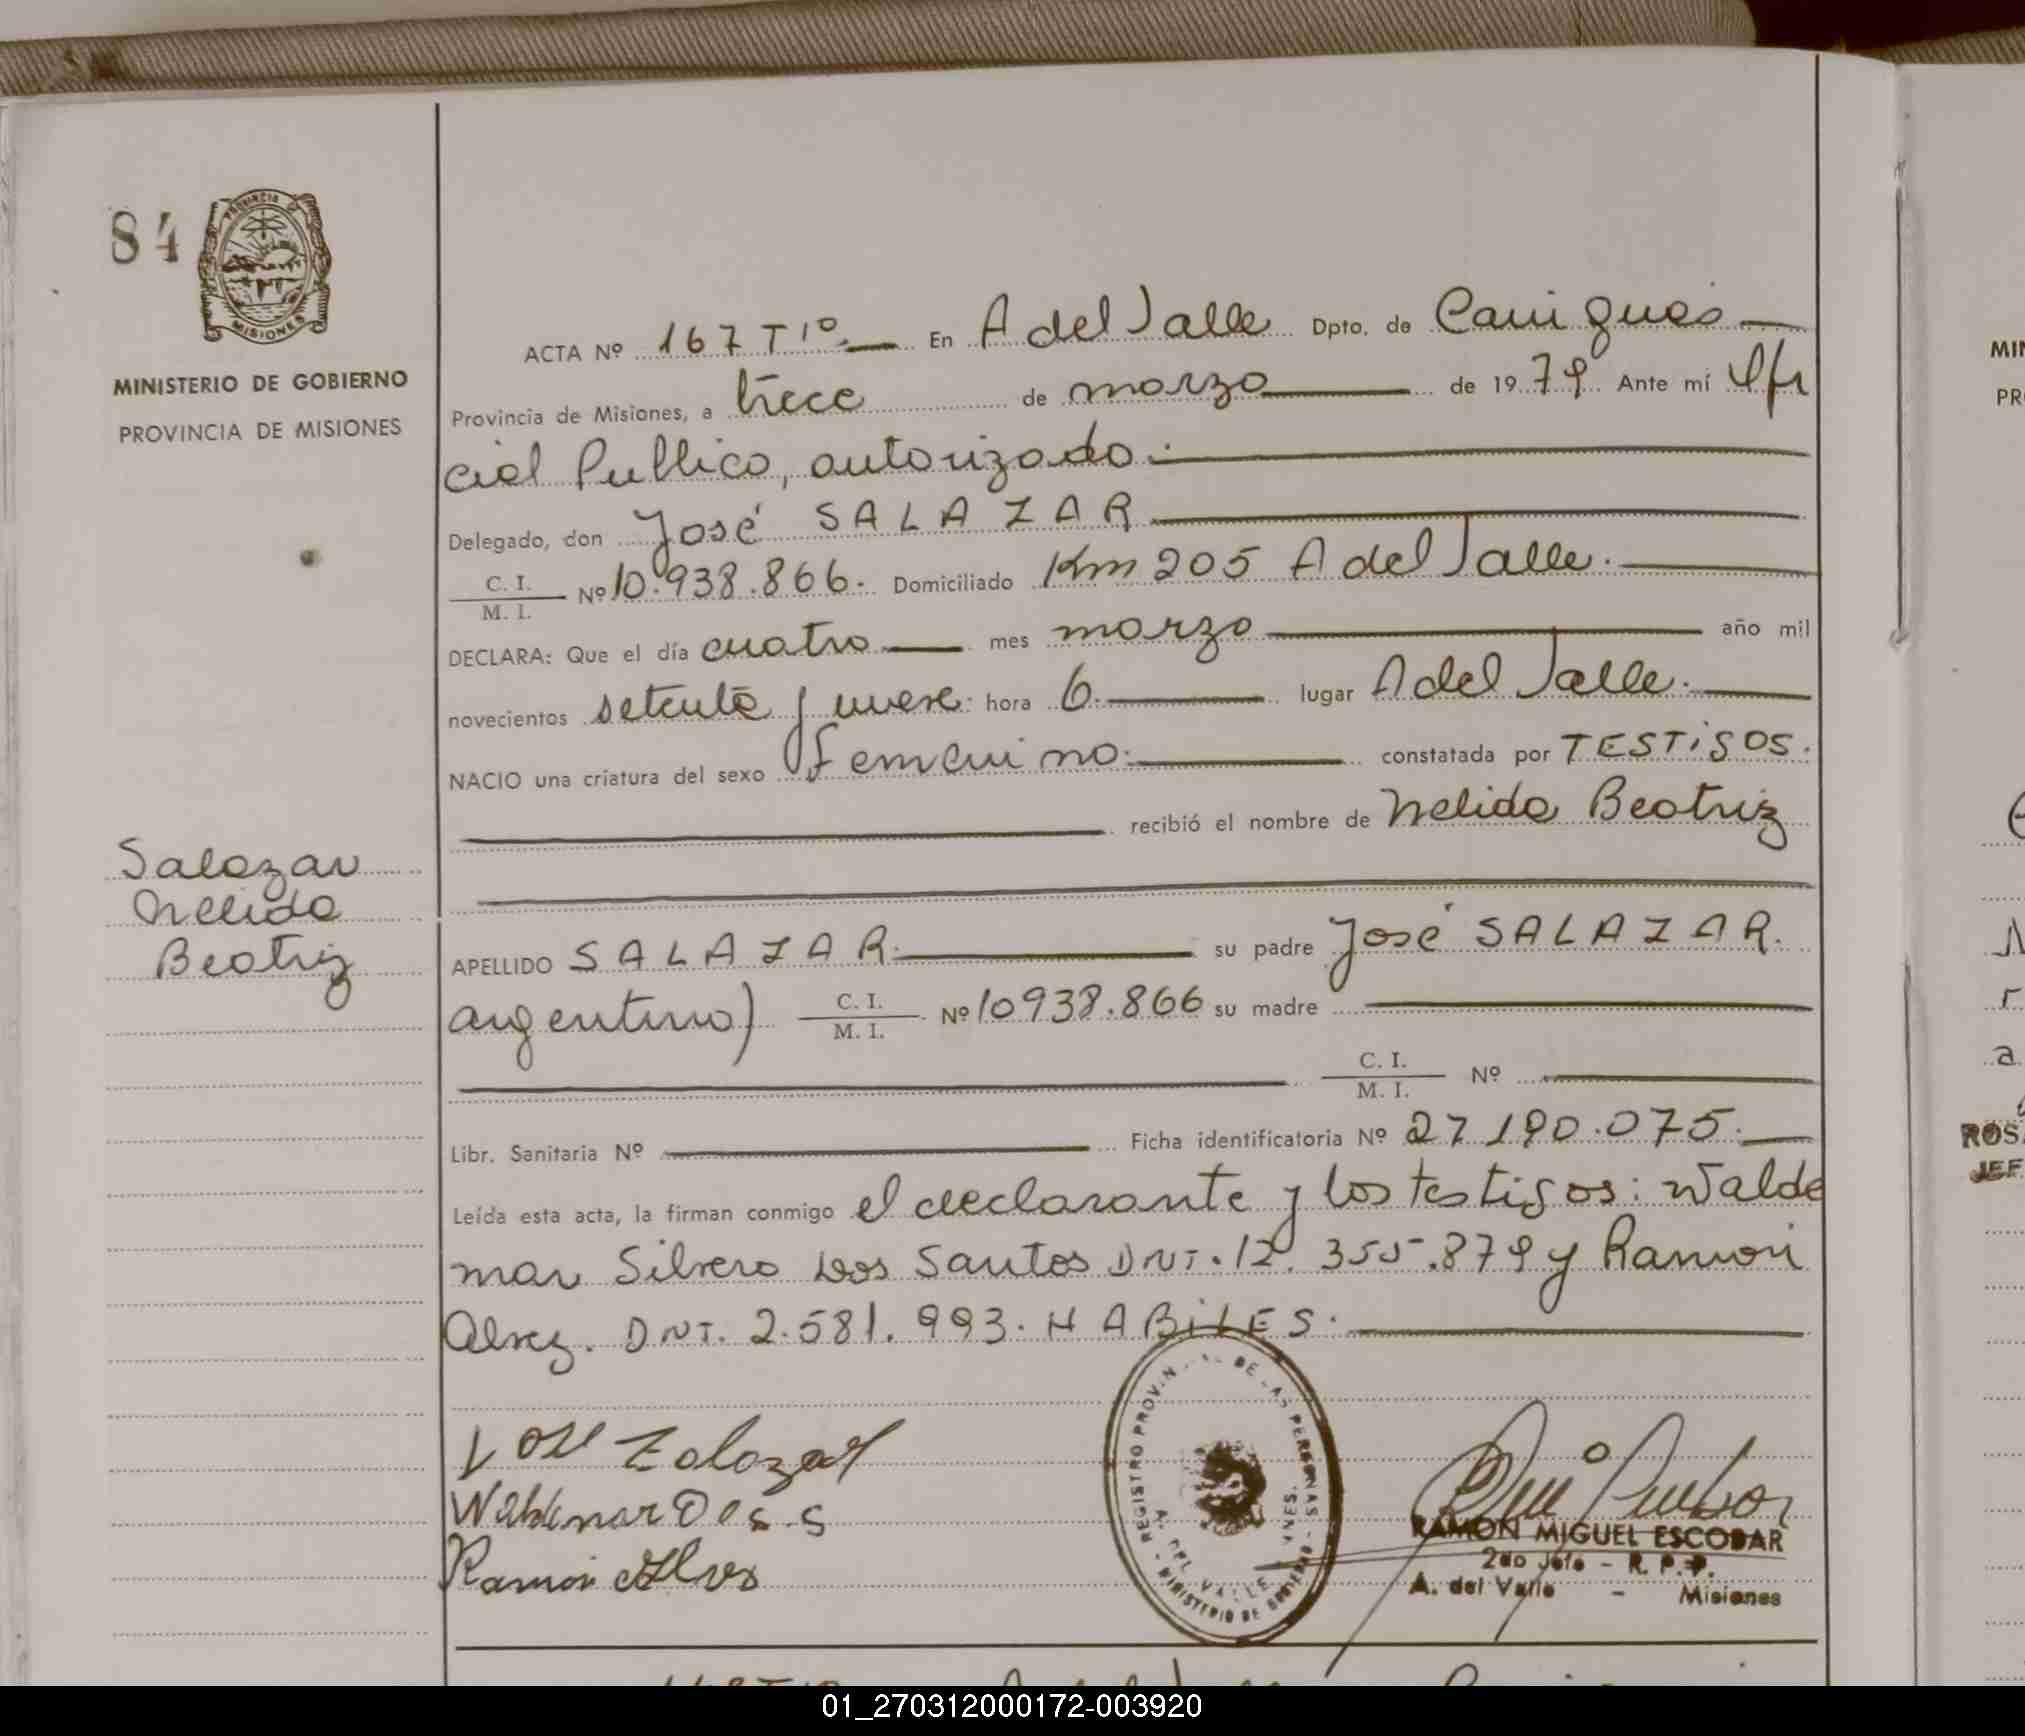 84
PROVINCIA
MISIONES
MINISTERIO DE GOBIERNO
PROVINCIA DE MISIONES
ACTA Nº 167 Tº 1º En A del Valle Dpto. de Cainguas
Provincia de Misiones, a trece de marzo de 1979 Ante mí Ofi
cial Publico, autorizado.
Delegado, don José SALAZAR
C. I.
M. I. Nº 10.938.866. Domiciliado Km 205 A del Valle.
DECLARA: Que el día cuatro mes marzo año mil
novecientos setenta y nueve. hora 6. lugar A del Valle.
NACIO una criatura del sexo femenino. constatada por TESTiGOS.
recibió el nombre de Nelida Beatriz
Salazar
Nelida
Beatriz
APELLIDO SALAZAR. su padre José SALAZAR.
argentino) C. I.
M. I. Nº 10938.866 su madre
C. I.
M. I. Nº
Libr. Sanitaria Nº Ficha identificatoria Nº 27190.075.
Leída esta acta, la firman conmigo el declarante y los testigos: Walde
mar Silvero Dos Santos DNI. 12.355.879 y Ramon
Alvez. DNI. 2.581.993. HABiLES.
José Zalazar
Waldemar D S. S
Ramon Alves
REGISTRO PROVIN DE LAS PERSONAS
A. DEL VALLE MNES.
MINISTERIO DE GOBIERNO
RAMON MIGUEL ESCOBAR
2do Jefe - R. P. P.
A. del Valle - Misiones
MIN
PR
ROS
JEF
01_270312000172-003920